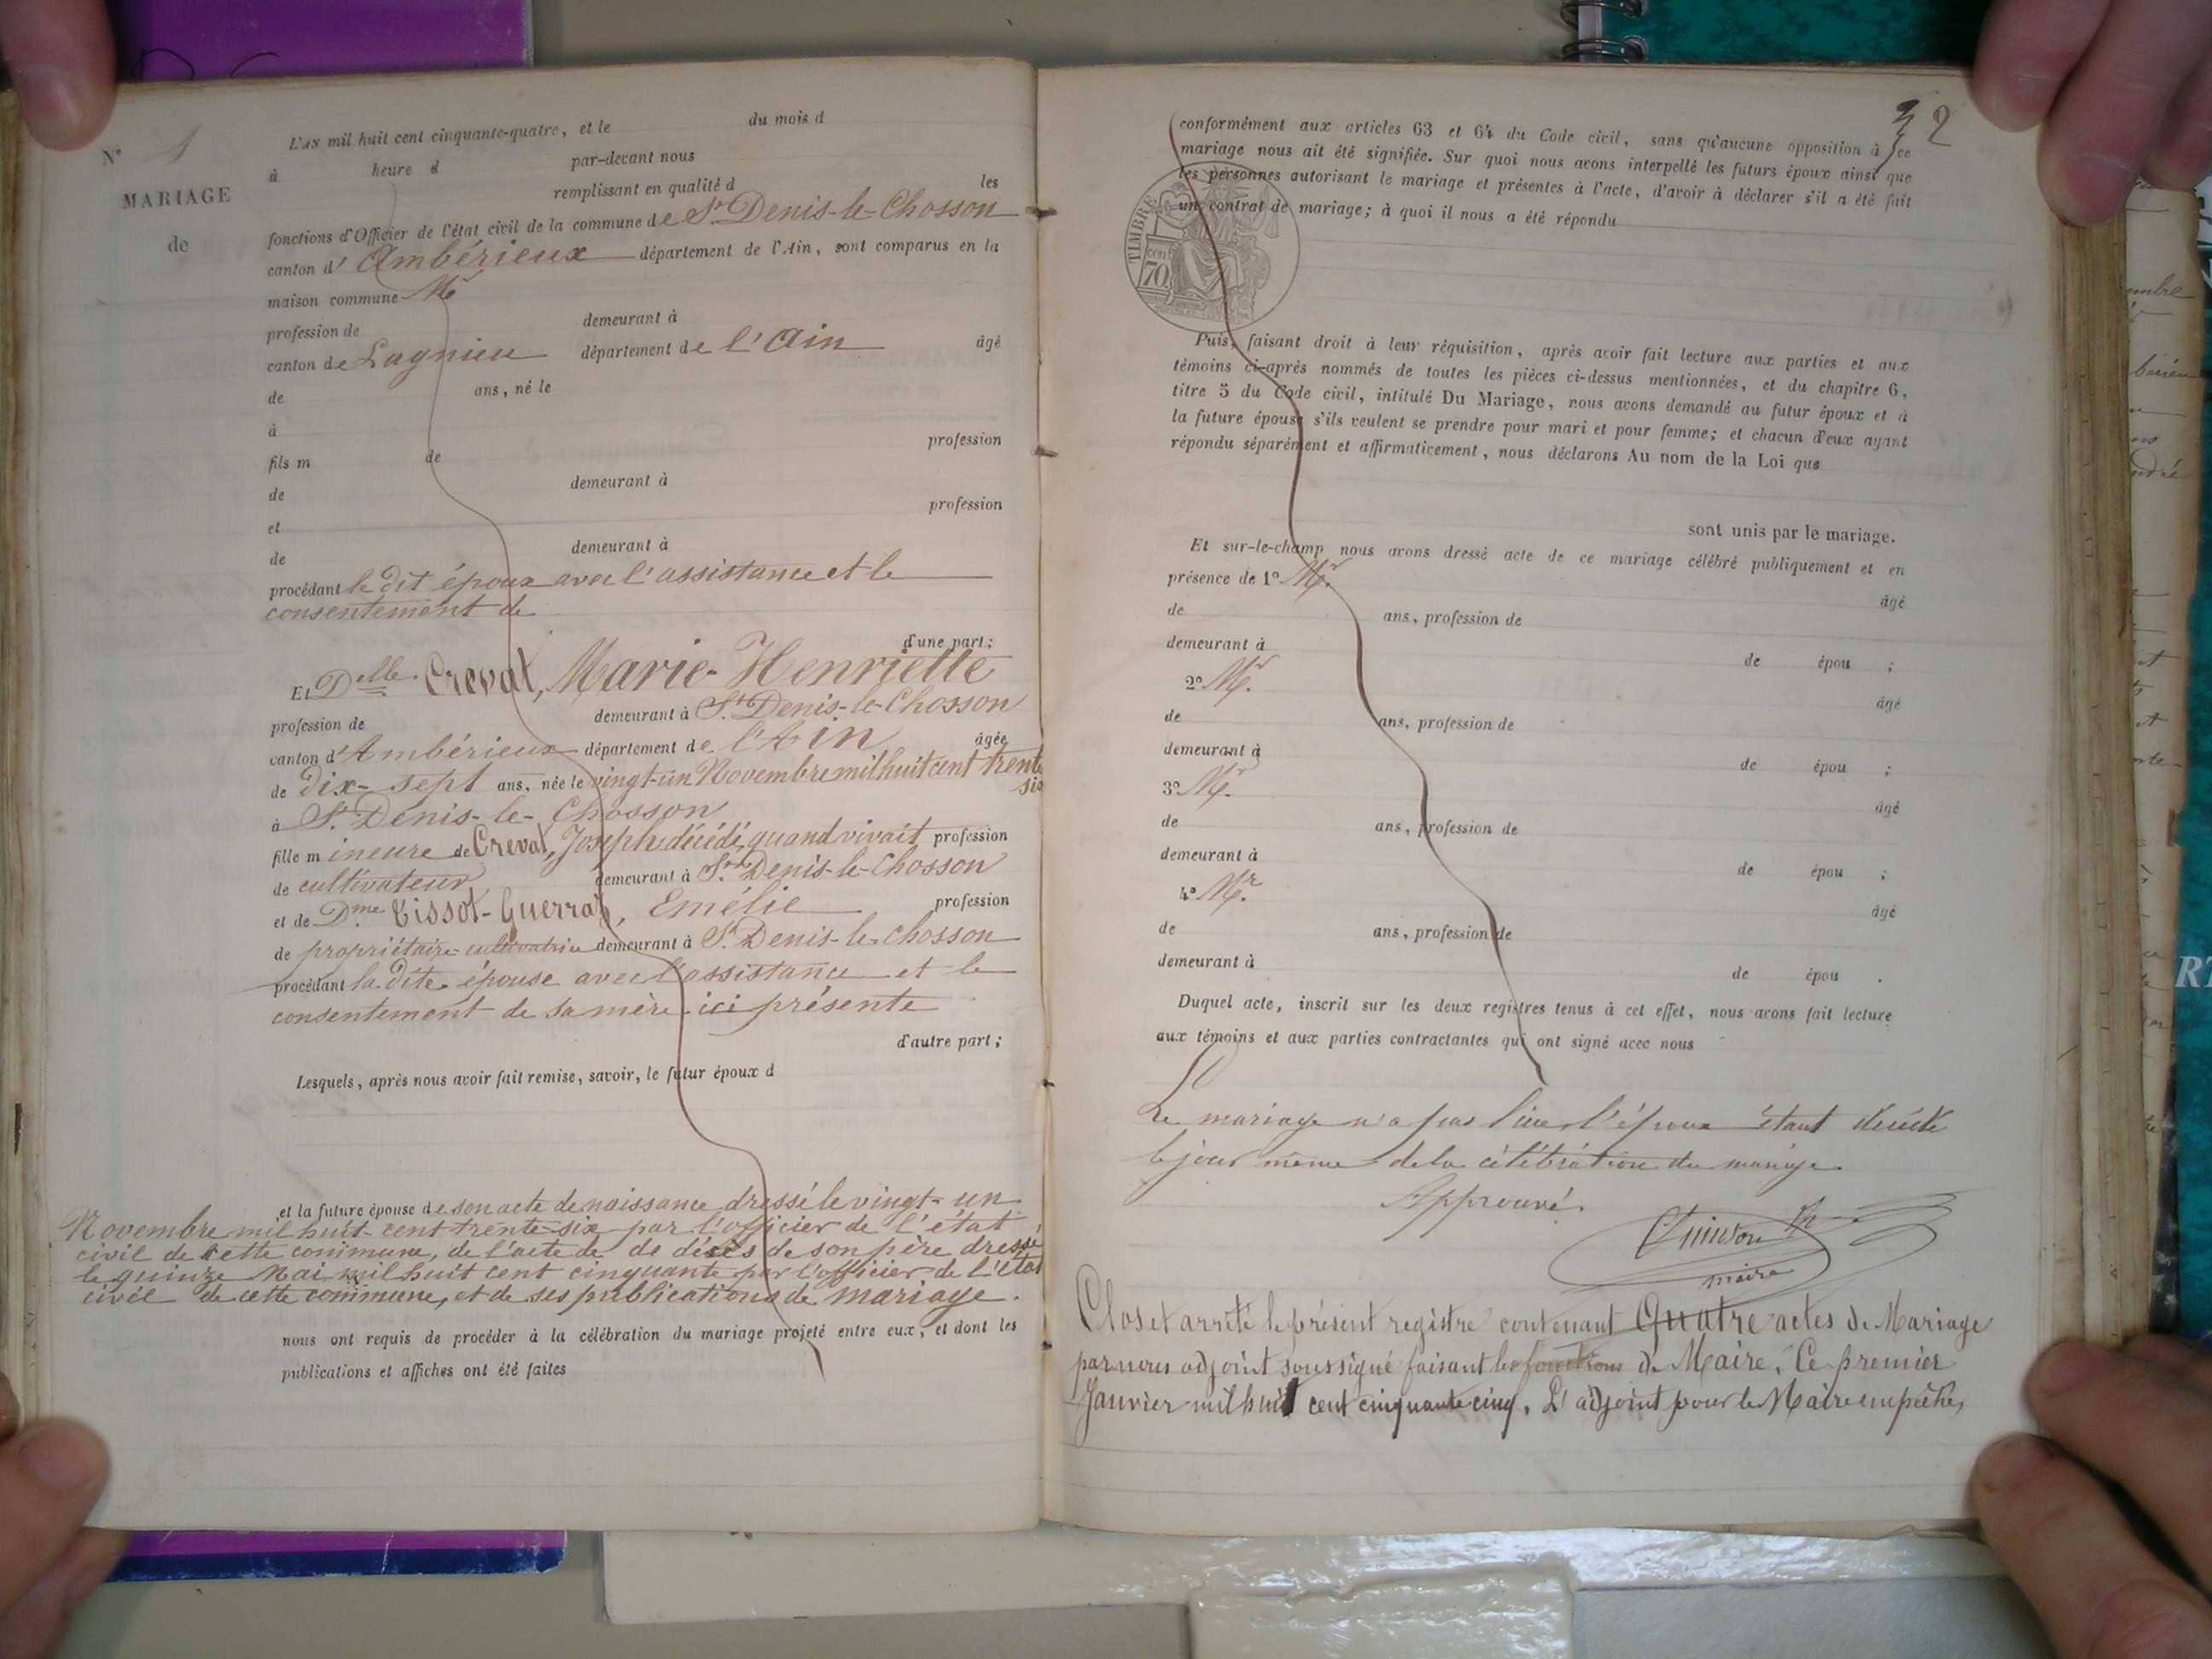 N° 1
MARIAGE
de
L'AN mil huit cent cinquante-quatre, et le du mois d
à heure d par-devant nous
remplissant en qualité d les
fonctions d'Officier de l'état civil de la commune de St Denis-le-Chosson
canton d'Ambérieux département de l'Ain, sont comparus en la
maison commune Mr
profession de demeurant à
canton de Lagnieu département de l'Ain âgé
de ans, né le
à
fils m de profession
de demeurant à
et profession
de demeurant à
procédant le dit époux avec l'assistance et le
consentement de
d'une part;
Et Delle Creval, Marie-Henriette
profession de demeurant à St Denis-le-Chosson
canton d'Ambérieux département de l'Ain âgée
de dix-sept ans, née le vingt-un Novembre mil huit cent trente
six
à St Denis-le-Chosson
fille mineure de Creval, Joseph décédé, quand vivait profession
de cultivateur demeurant à St Denis-le-Chosson
et de Dme Tissot-Guerraz, Emélie profession
de propriétaire-cultivatrice demeurant à St Denis-le-Chosson
procédant la dite épouse avec l'assistance et le
consentement de sa mère ici présente
d'autre part;
Lesquels, après nous avoir fait remise, savoir, le futur époux d
et la future épouse de son acte de naissance dressé le vingt-un
Novembre mil huit-cent-trente-six par l'officier de l'état
civil de cette commune, de l'acte de de décès de son père dressé
le quinze Mai mil huit cent cinquante par l'officier de l'état
civil de cette commune, et de ses publications de mariage.
nous ont requis de procéder à la célébration du mariage projeté entre eux, et dont les
publications et affiches ont été faites
32
conformément aux articles 63 et 64 du Code civil, sans qu'aucune opposition à ce
mariage nous ait été signifiée. Sur quoi nous avons interpellé les futurs époux ainsi que
les personnes autorisant le mariage et présentes à l'acte, d'avoir à déclarer s'il a été fait
un contrat de mariage; à quoi il nous a été répondu
TIMBRE
70 cent
Puis, faisant droit à leur réquisition, après avoir fait lecture aux parties et aux
témoins ci-après nommés de toutes les pièces ci-dessus mentionnées, et du chapitre 6,
titre 5 du Code civil, intitulé Du Mariage, nous avons demandé au futur époux et à
la future épouse s'ils veulent se prendre pour mari et pour femme; et chacun d'eux ayant
répondu séparément et affirmativement, nous déclarons Au nom de la Loi que
sont unis par le mariage.
Et sur-le-champ nous avons dressé acte de ce mariage célébré publiquement et en
présence de 1° Mr. âgé
de ans, profession de
demeurant à de épou ;
2° Mr. âgé
de ans, profession de
demeurant à de épou ;
3° Mr. âgé
de ans, profession de
demeurant à de épou ;
4° Mr. âgé
de ans, profession de
demeurant à de épou .
Duquel acte, inscrit sur les deux registres tenus à cet effet, nous avons fait lecture
aux témoins et aux parties contractantes qui ont signé avec nous
Le mariage n'a pas lieu l'époux étant décédé
le jour même de la célébration du mariage
Approuvé.
Quinson
maire
Clos et arrêté le présent registre contenant Quatre actes de Mariage
par nous adjoint soussigné faisant les fonctions de Maire, Ce premier
Janvier mil huit cent cinquante cinq. L'adjoint pour le Maire empêché,